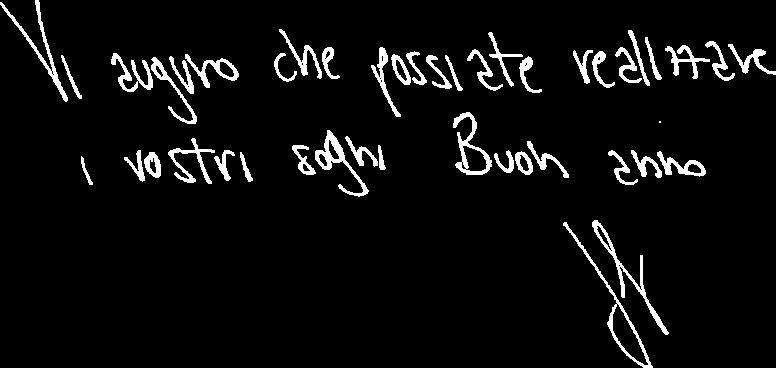 Vi auguro che possiate realizzare
i vostri sogni Buon anno